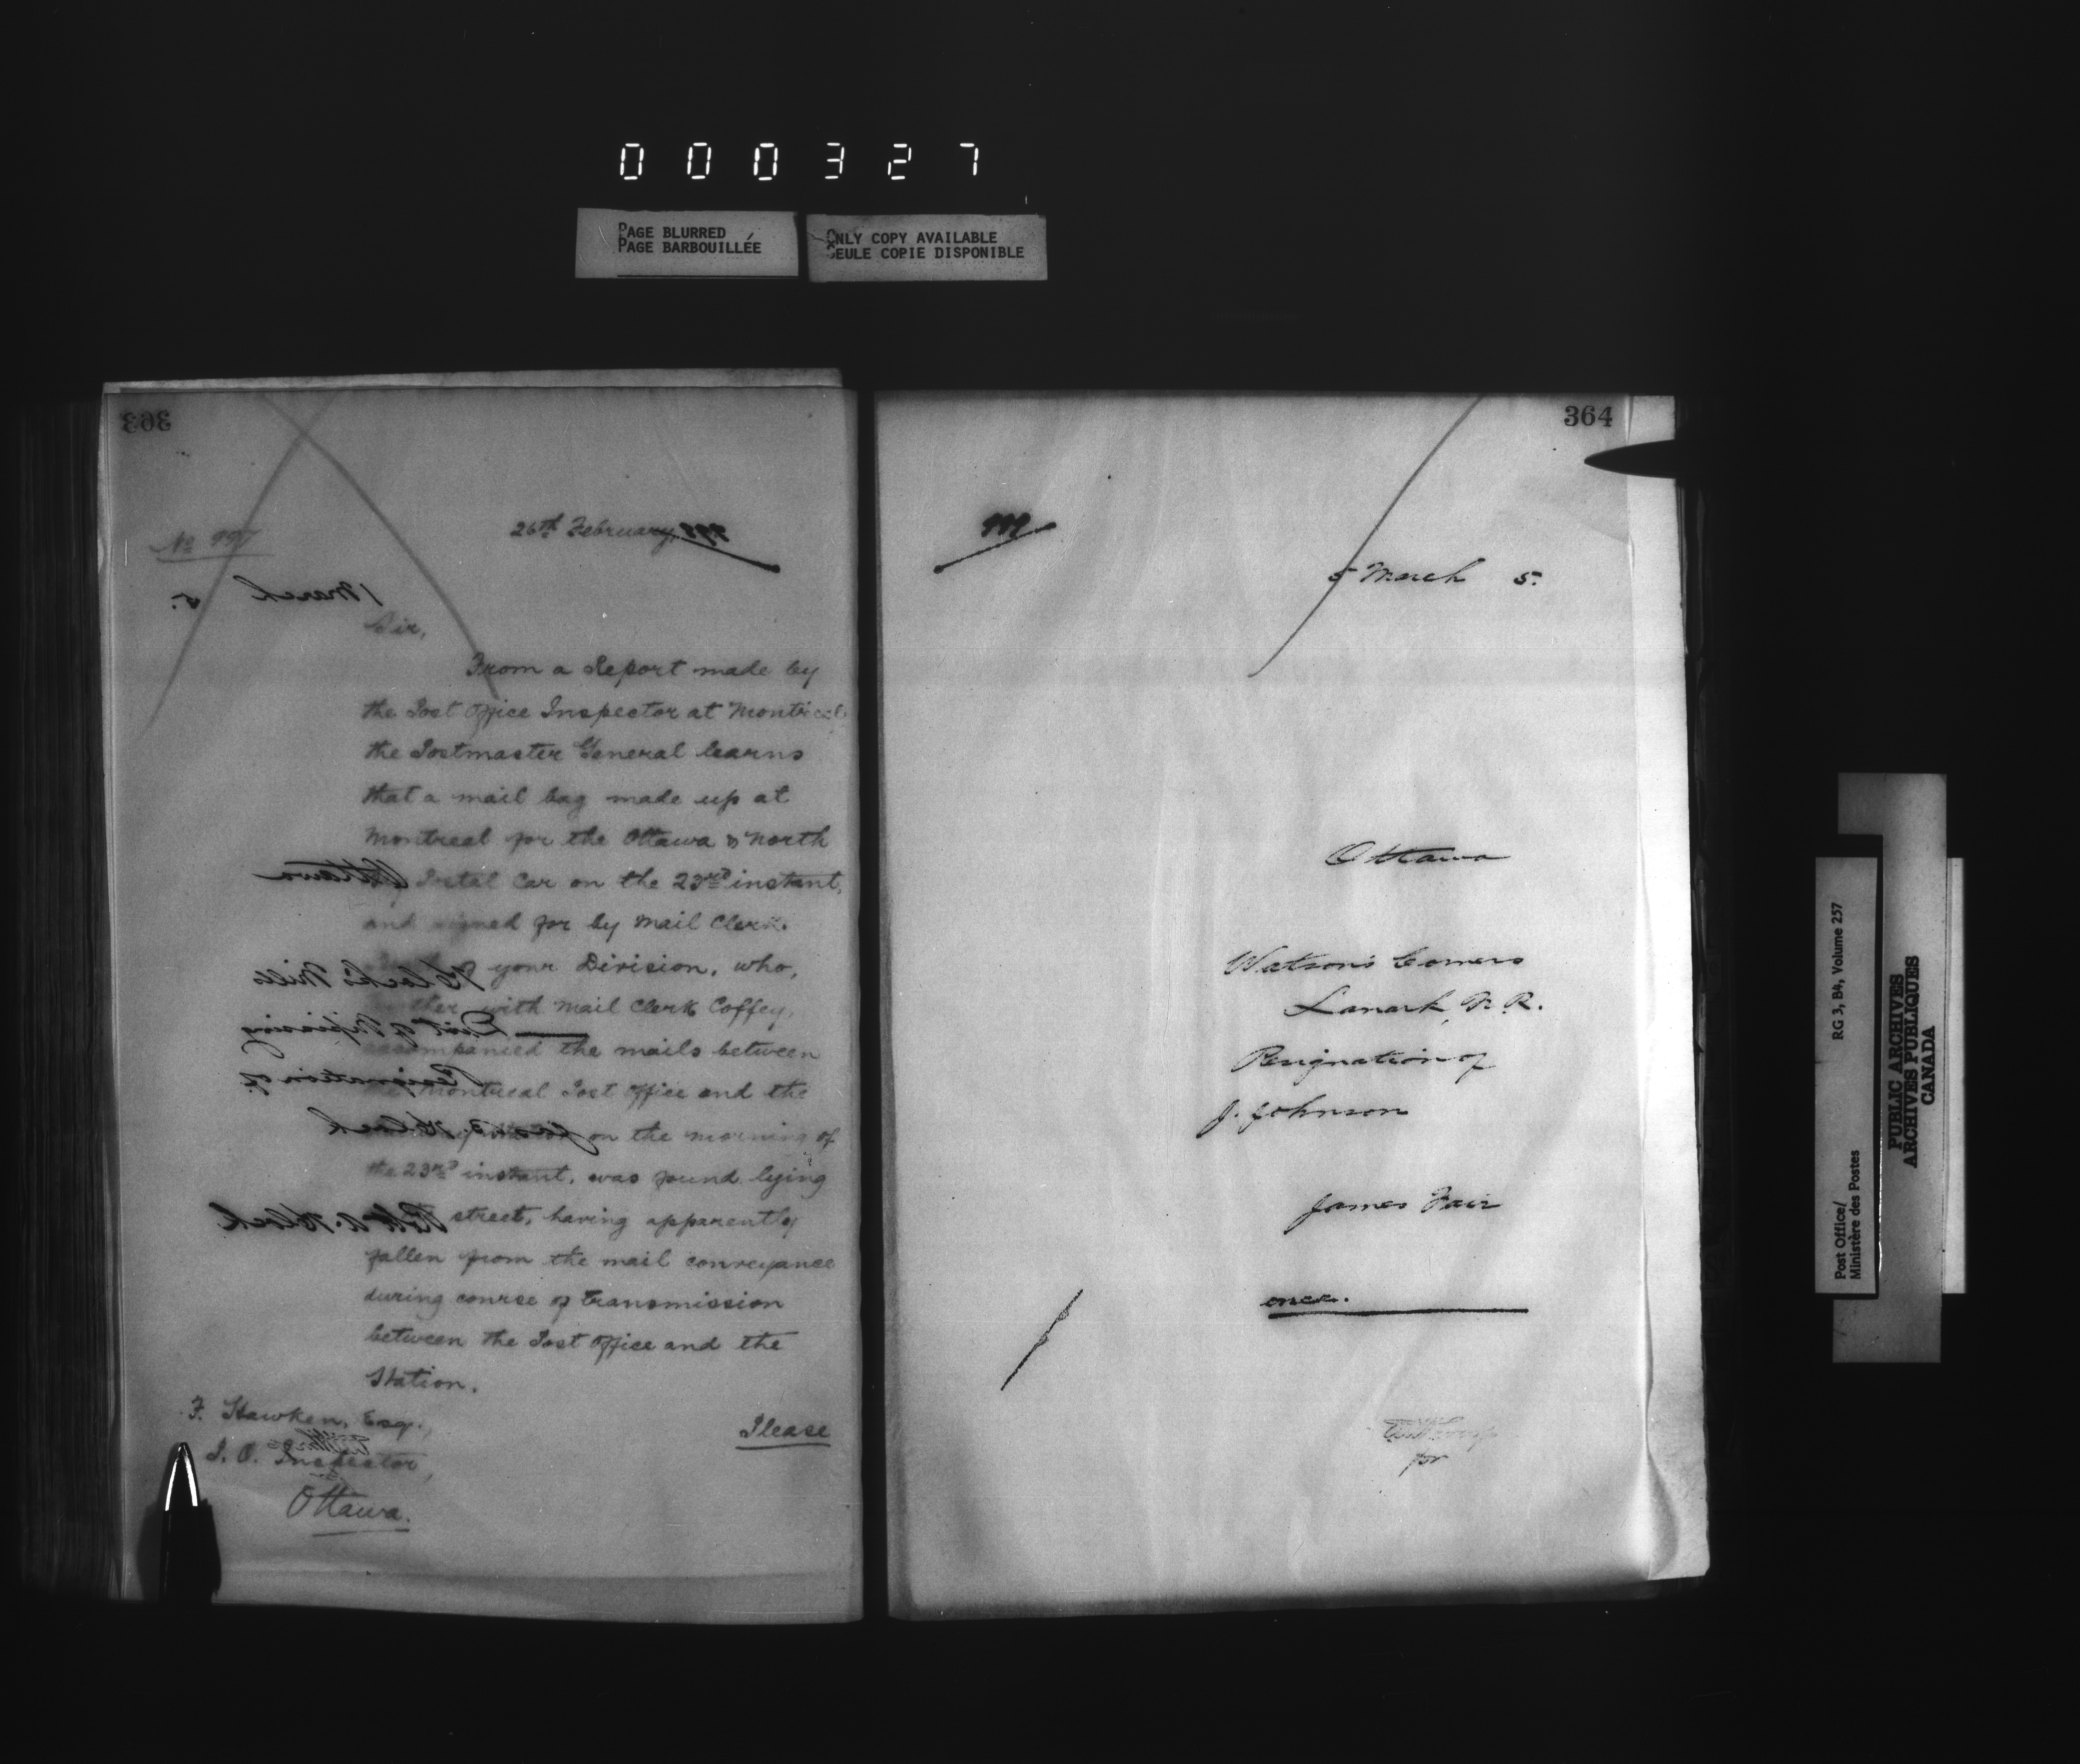 000327
PAGE BLURRED
PAGE BARBOUILLÉE
ONLY COPY AVAILABLE
SEULE COPIE DISPONIBLE
363
No 997
26th February
998
1 March 5.
Sir,
From a Report made by
the Post Office Inspector at Montreal
the Postmaster General learns
that a mail bag made up at
Montreal for the Ottawa & North
Postal Car on the 23rd instant,
and signed for by Mail Clerk
of your Division, who,
together with Mail Clerk Coffey,
accompanied the mails between
the Montreal Post Office and the
on the morning of
the 23rd instant, was found lying
street, having apparently
fallen from the mail conveyance
during course of transmission
between the Post Office and the
Station.
F. Hawken, Esq.,
P. O. Inspector,
Ottawa.
Please
Ottawa
Klock's Mills
Dist of Nipissing
Resignation of
Klock
Robt A. Klock
364
999
5 March 5.
Ottawa
Watson's Corners
Lanark, N. R.
Resignation of
J. Johnson
James Fair
once.
for
Post Office/ RG 3, B4, Volume 257
Ministère des Postes
PUBLIC ARCHIVES
ARCHIVES PUBLIQUES
CANADA